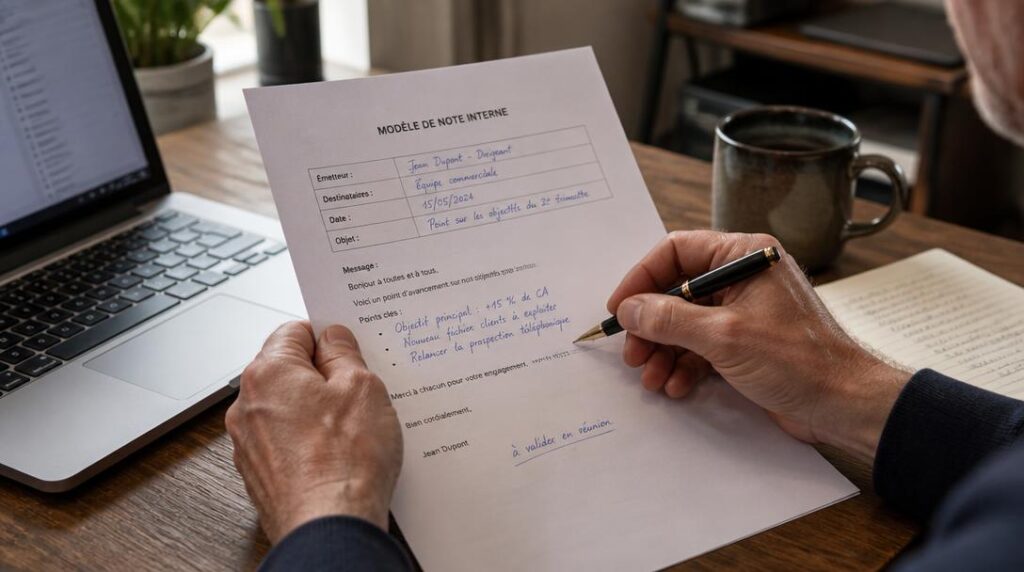 MODÈLE DE NOTE INTERNE
Émetteur : Jean Dupont - Dirigeant
Destinataires : Équipe commerciale
Date : 15/05/2024
Objet : Point sur les objectifs du 2e trimestre
Message :
Bonjour à toutes et à tous,
Voici un point d'avancement sur nos objectifs
Points clés :
• Objectif principal : +15 % de CA
• Nouveau fichier clients à exploiter
• Relancer la prospection téléphonique
Merci à chacun pour votre engagement,
Bien cordialement,
Jean Dupont
à valider en réunion